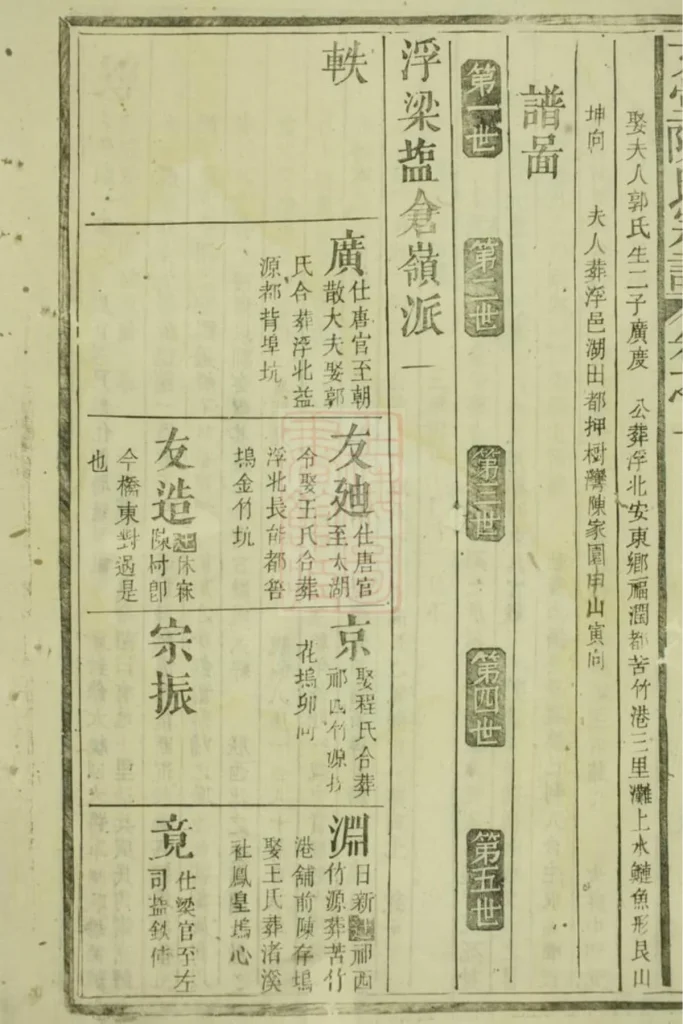 娶夫人郭氏生二子廣度　公葬浮北安東鄉福潤都苦竹港三里灘上水鰱魚形艮山
坤向　夫人葬浮邑湖田都押樹灣陳家園申山寅向
譜啚
第一世
第二世
第三世
第四世
第五世
浮梁塩倉嶺派一
軼
廣
仕唐官至朝
散大夫娶郭
氏合葬浮北益
源都背埠坑
友廸
仕唐官
至太湖
令娶王氏合葬
浮北長
塢金竹坑
友造
遷休
陳村卽
今橋東對過是
也
京
娶程氏合葬
祁西竹源
花塢卯向
宗振
淵
日新遷祁西
竹源葬苦竹
港舖前陳存塢
娶王氏葬渚溪
社鳳皇塢心
竟
仕梁官至左
司塩鉄使